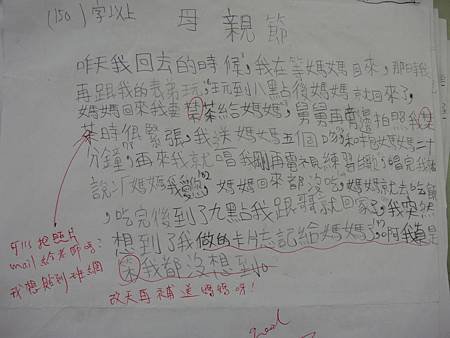 (150)字以上
母親節
昨天我回去的時候,我在等媽媽回來,那時我
再跟我的表弟玩,玩到八點後媽媽就回來了,
媽媽回來我奉茶給媽媽,舅舅再旁邊拍照我
茶時很緊張,我送媽媽五個 媽媽二十
分鐘,再來我就唱我剛再電視練習 唱完我
說 媽媽我愛您,媽媽回來都沒吃,媽媽就去吃飯
,吃完後到了九點我跟哥就回家了,我突然
想到了我做的卡片忘記給媽媽了,啊我 是
呆我都沒想到。
把照片
mail給老師嗎?
我想貼到班網
改天再補送媽媽呀!